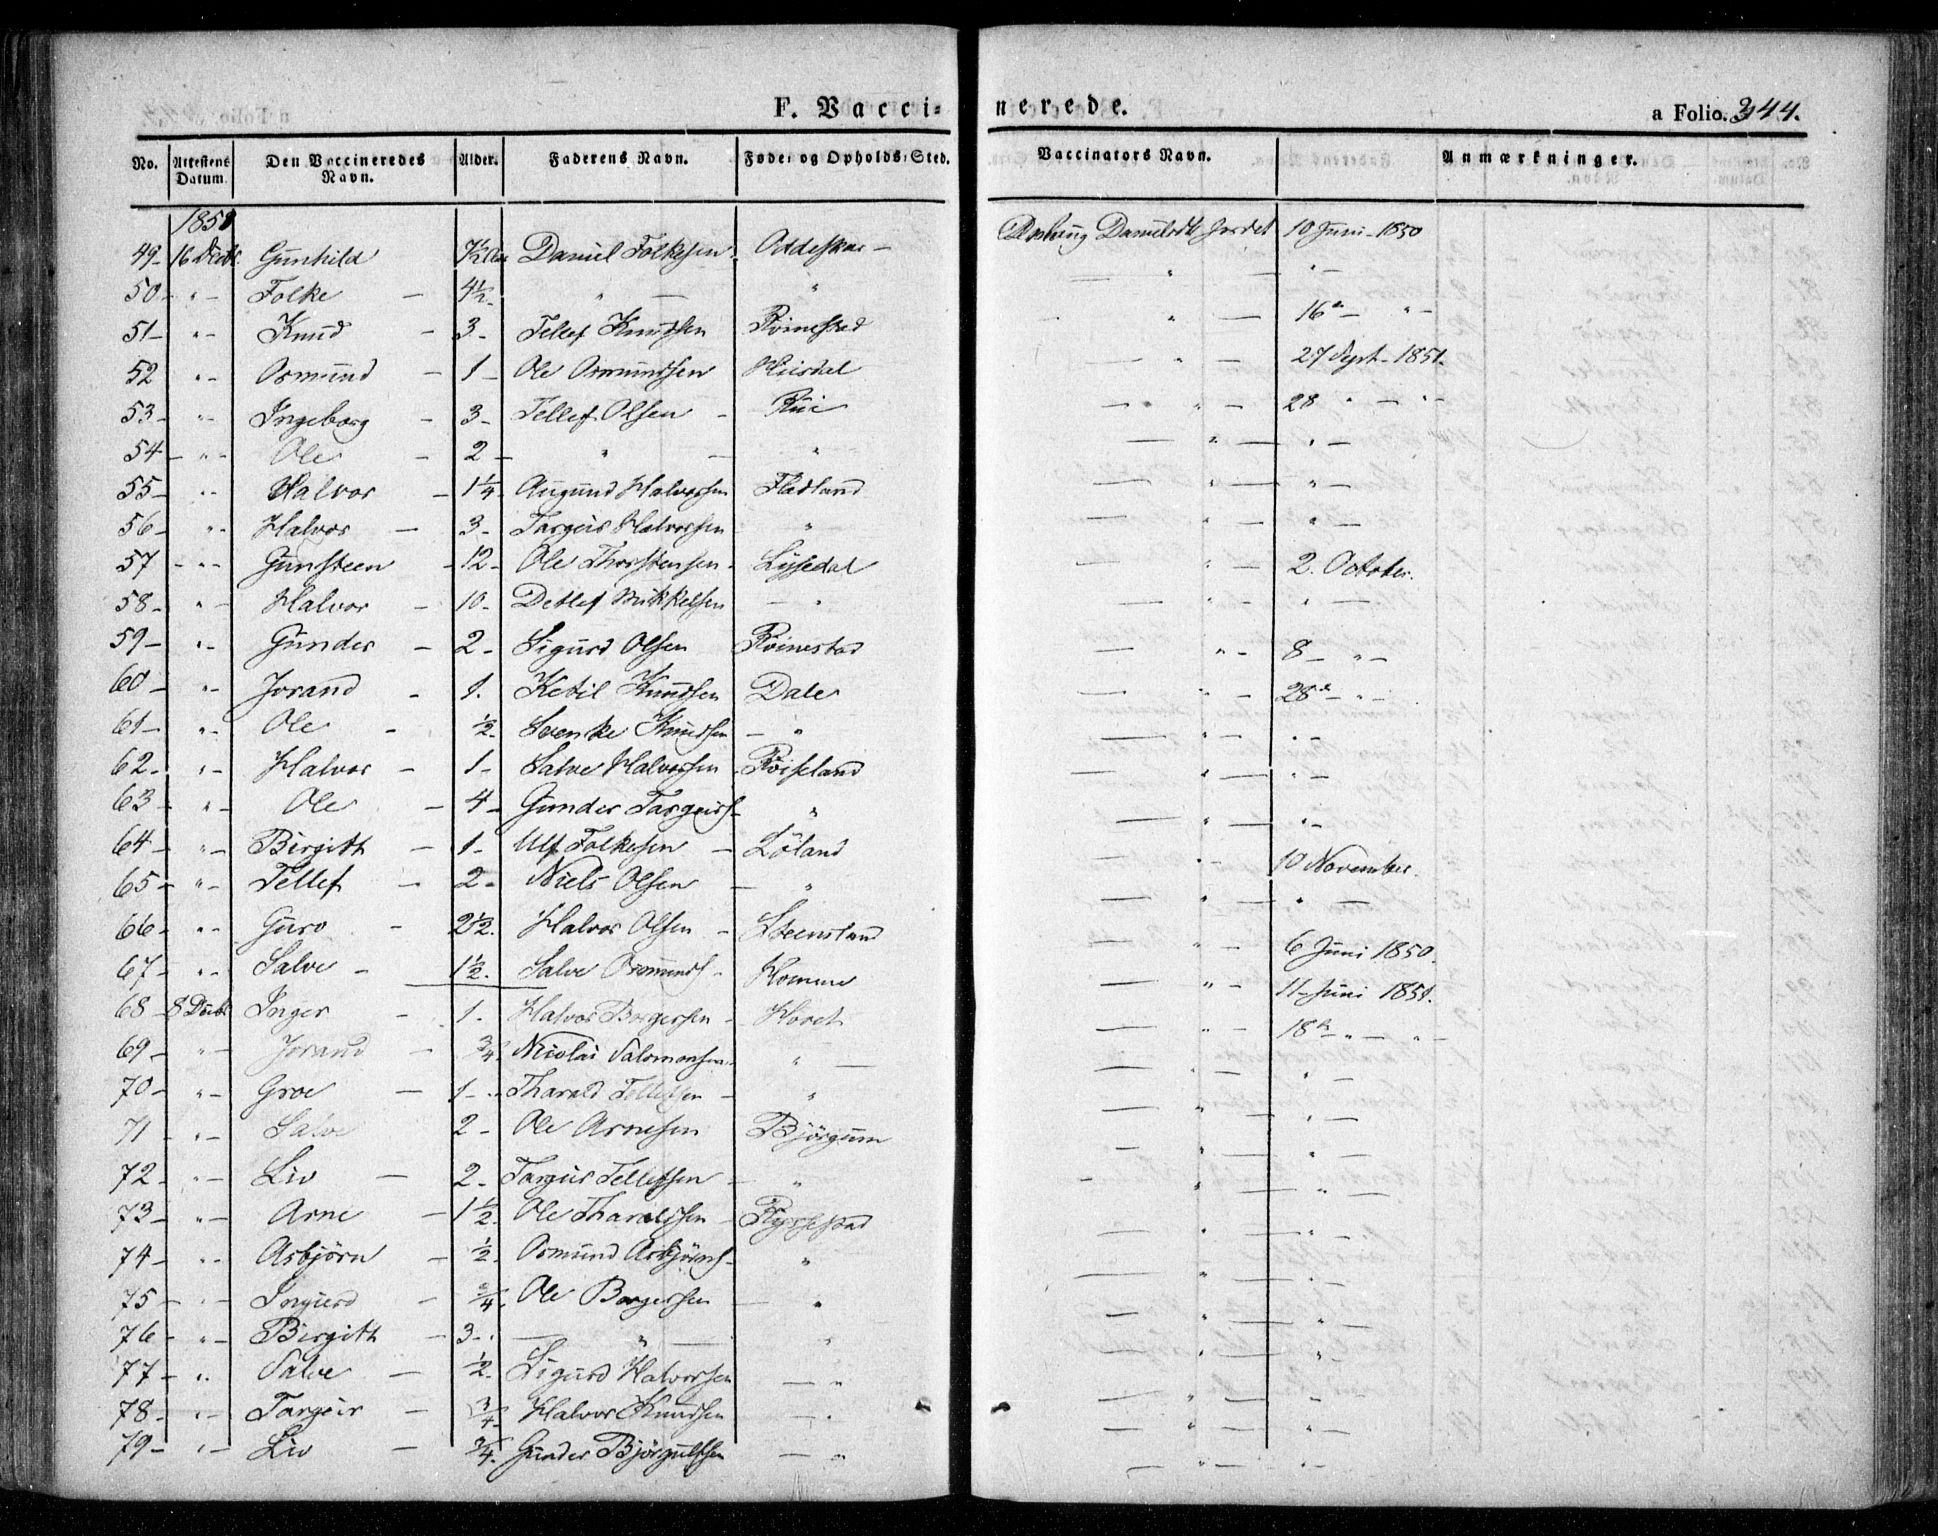 F. Vacci= nerede. a Folio. 344.
No. Attestens Datum. Den Vaccineredes Navn. Alder. Faderens Navn. Føde- og Opholds-Sted. Vaccinators Navn. Anmærkninger.
1851
49 - 16 Decbr. Gunhild 7½ Aar Daniel Folkesen Oddeskar - Danielsdtr 10 Juni - 1850
50 - " - Folke - 4½ - " - " - " - " -
51 - " - Knud - 3 - Tellef Knudsen Röinestad - " - 16 - " -
52 " - Osmund - 1 - Ole Osmundsen - " - 27 Sept - 1851.
53 - " - Ingeborg - 3 - Tellef Olsen - - " - 28 " - " -
54 - " - Ole - 2 - " - " - " - " -
55 - " - Halvor - 1¼ - Augund Halvorsen Fladland - " - " -
56 - " - Halvor - 3 - Targeir Halvorsen " - " - " -
57 - " - Gunsteen - 12 - Ole Thorstensen - Lyssedal - " - 2. October.
58 - " - Halvor - 10 - Detlef Mikkelsen - " - " - " -
59 - " - Gunder - 2 - Sigurd Olsen Röinestad - " - 8 - " -
60 - " - Jorand - 1. Ketil Knudsen Dale - " - 28 - " -
61 - " - Ole - ½ - Svenke Knudsen - " - " - " -
62 - " - Halvor - 1 - Salve Halvorsen Röiseland - " - " -
63 - " - Ole - 4 - Gunder Targeirs - " - " - " -
64 - " - Birgith - 1 - Ulf Folkesen - Löland - " - 10 November.
65 - " - Tellef - 2 - Niels Olsen - " - " - " -
66 - " - Guro - 2½. Halvor Olsen - Steensland - " - 6 Juni 1850.
67 - " - Salve - 1½. Salve Osmunds - Homme - " - 11 Juni 1851.
68 - 8 Decbr Inger - 1. Halvor Borgersen - Hovet - " - 18 - " - " -
69 - " - Jorand - ¾. Nicolai Salomonsen " - " - " -
70 - " - Groe - 1 - Tharald Tellefsen - " - " - " -
71 - " - Salve 2 - Ole Arnesen Björgum - " - " -
72 - " - Liv - 2 - Targeir Tellefsen - " - " - " -
73 - " - Arne - 1½. Ole Tharaldsen - Rysstad - " - " -
74 - " - Asbjörn - ½ - Osmund Asbjörns - " - " - " -
75 - " - - ¾. Ole Borgersen - " - " - " -
76 - " - Birgith - 3 - - " - " - " - " -
77 - " - Salve - ½ - Sigurd Halvorsen - " - " - " -
78 - " - Targeir - ¾ - Halvor Knudsen - " - " - " -
79 - " - Liv - ¾. Gunder Björgulfsen - " - " - " -